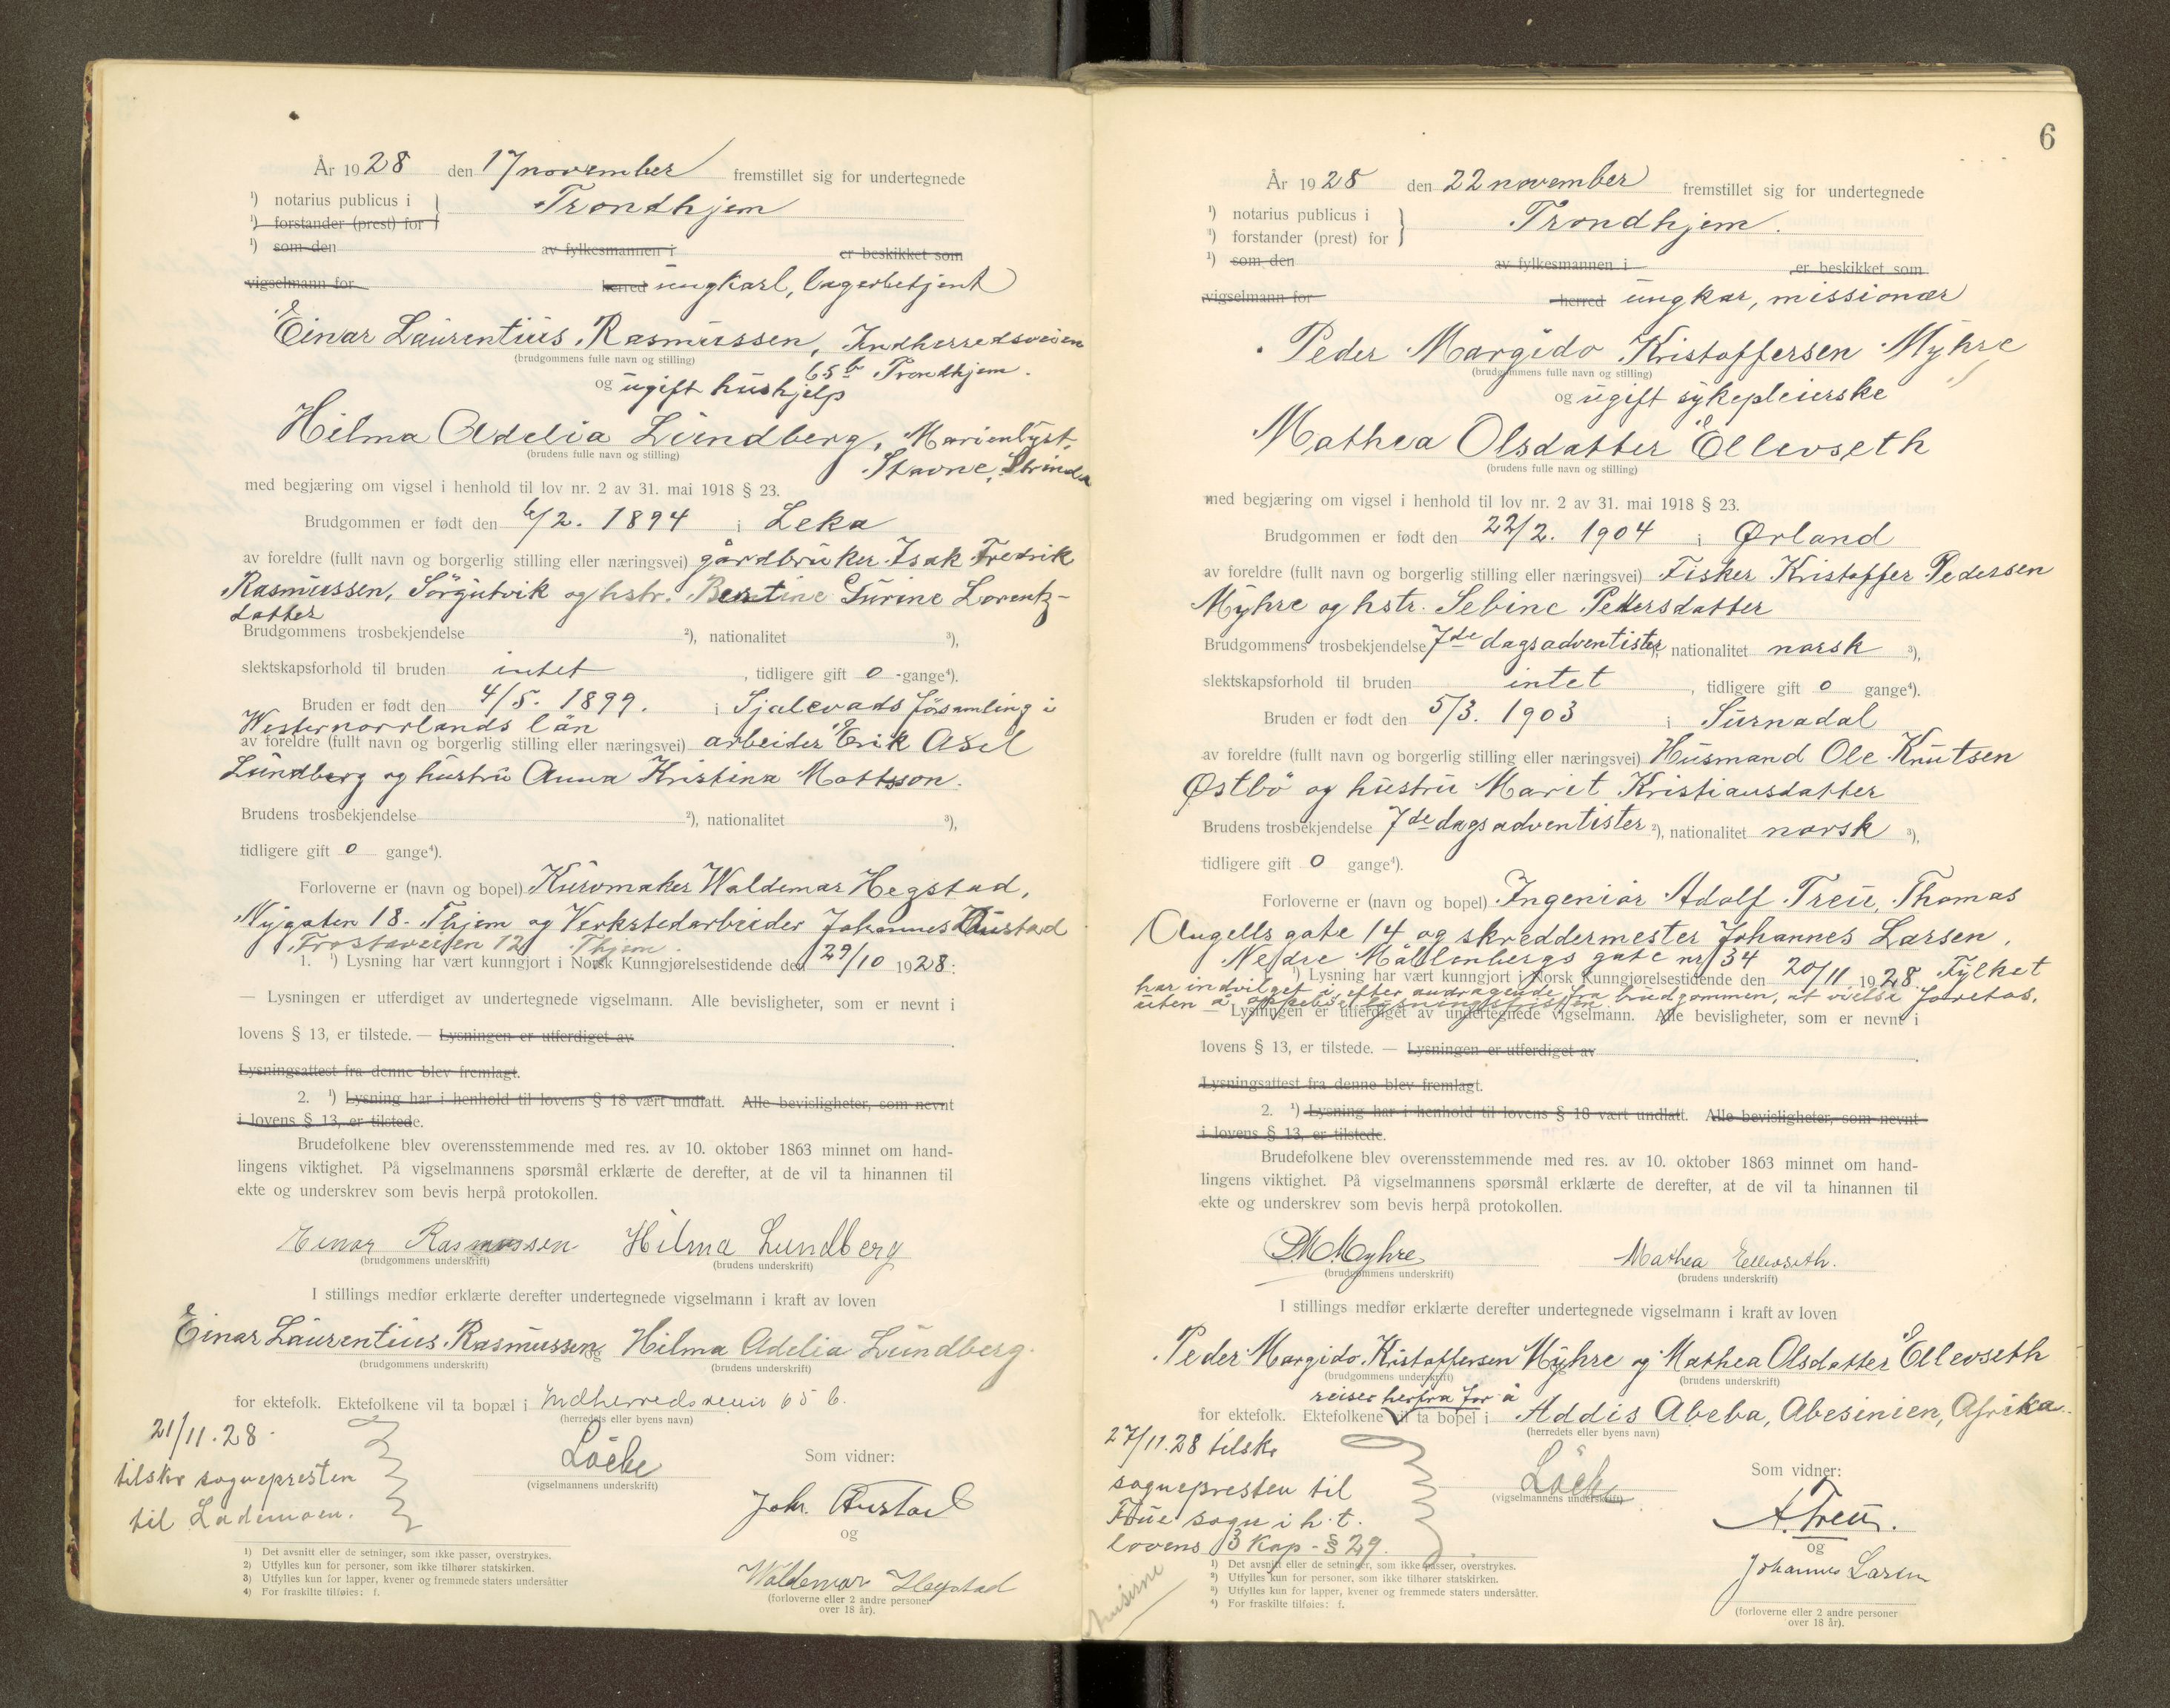 År 1928 den 17 november fremstillet sig for undertegnede
¹) notarius publicus i } Trondhjem
¹) forstander (prest) for
¹) som den av fylkesmannen i er beskikket som
vigselmann for herred ungkarl, lagerbetjent
Einar Laurentius Rasmussen, Indherredsveien
(brudgommens fulle navn og stilling) 65 b Trondhjem.
og ugift hushjelp
Hilma Adelia Lundberg, Marienlyst,
(brudens fulle navn og stilling) Stavne, Strinda
med begjæring om vigsel i henhold til lov nr. 2 av 31. mai 1918 § 23.
Brudgommen er født den 6/2. 1894 i Leka
av foreldre (fullt navn og borgerlig stilling eller næringsvei) gårdbruker Isak Fredrik
Rasmussen, Sörgutvik og hstr. Bentine Surine Lorentz-
datter
Brudgommens trosbekjendelse ²), nationalitet ³),
slektskapsforhold til bruden intet , tidligere gift 0 gange⁴).
Bruden er født den 4/5. 1899. i Sjalevads församling i
Westernorrlands län
av foreldre (fullt navn og borgerlig stilling eller næringsvei) arbeider Erik Axel
Lundberg og hustru Anna Kristina Mattsson.
Brudens trosbekjendelse ²), nationalitet ³),
tidligere gift 0 gange⁴).
Forloverne er (navn og bopel) Kurvmaker Waldemar Hegstad,
Nygaten 18. Thjem og Verkstedarbeider Johannes Austad
Frostaveien 12 Thjem.
1. ¹) Lysning har vært kunngjort i Norsk Kunngjørelsestidende den 29/10 1928:
— Lysningen er utferdiget av undertegnede vigselmann. Alle bevisligheter, som er nevnt i
lovens § 13, er tilstede. — Lysningen er utferdiget av
Lysningsattest fra denne blev fremlagt.
2. ¹) Lysning har i henhold til lovens § 18 vært undlatt. Alle bevisligheter, som nevnt
i lovens § 13, er tilstede.
Brudefolkene blev overensstemmende med res. av 10. oktober 1863 minnet om hand-
lingens viktighet. På vigselmannens spørsmål erklærte de derefter, at de vil ta hinannen til
ekte og underskrev som bevis herpå protokollen.
Einar Rasmussen Hilma Lundberg
(brudgommens underskrift) (brudens underskrift)
I stillings medfør erklærte derefter undertegnede vigselmann i kraft av loven
Einar Laurentius Rasmussen og Hilma Adelia Lundberg.
(brudgommens underskrift) (brudens underskrift)
for ektefolk. Ektefolkene vil ta bopæl i Indherredsveien 65 b.
(herredets eller byens navn)
21/11.28.
tilskr sognepresten
til Lademoen.
Löche
(vigselmannens underskrift)
Som vidner:
Joh. Austad
og
Waldemar Hegstad
(forloverne eller 2 andre personer
over 18 år).
1) Det avsnitt eller de setninger, som ikke passer, overstrykes.
2) Utfylles kun for personer, som ikke tilhører statskirken.
3) Utfylles kun for lapper, kvener og fremmede staters undersåtter
4) For fraskilte tilføies: f.
6
År 1928 den 22 november fremstillet sig for undertegnede
¹) notarius publicus i } Trondhjem.
¹) forstander (prest) for
¹) som den av fylkesmannen i er beskikket som
vigselmann for herred ungkar, missionær
Peder Margido Kristoffersen Myhre
(brudgommens fulle navn og stilling)
og ugift sykepleierske
Mathea Olsdatter Ellevseth
(brudens fulle navn og stilling)
med begjæring om vigsel i henhold til lov nr. 2 av 31. mai 1918 § 23.
Brudgommen er født den 22/2. 1904 i Ørland
av foreldre (fullt navn og borgerlig stilling eller næringsvei) Fisker Kristoffer Pedersen
Myhre og hstr. Sebine Pedersdatter
Brudgommens trosbekjendelse 7de dagsadventister, nationalitet norsk ³),
slektskapsforhold til bruden intet , tidligere gift 0 gange⁴).
Bruden er født den 5/3. 1903 i Surnadal
av foreldre (fullt navn og borgerlig stilling eller næringsvei) Husmand Ole Knutsen
Østbö og hustru Marit Kristiansdatter
Brudens trosbekjendelse 7de dagsadventister ²), nationalitet norsk ³),
tidligere gift 0 gange⁴).
Forloverne er (navn og bopel) Ingeniør Adolf Treu, Thomas
Angells gate 14 og skreddermester Johannes Larsen,
Nedre Möllenbergs gate nr 34
¹) Lysning har vært kunngjort i Norsk Kunngjørelsestidende den 20/11 1928. Fylket
har indvilget i, efter andragende fra brudgommen, at vielse foretas,
uten å oppebie lysningsfristen.
— Lysningen er utferdiget av undertegnede vigselmann. Alle bevisligheter, som er nevnt i
lovens § 13, er tilstede. — Lysningen er utferdiget av
Lysningsattest fra denne blev fremlagt.
2. ¹) Lysning har i henhold til lovens § 18 vært undlatt. Alle bevisligheter, som nevnt
i lovens § 13, er tilstede.
Brudefolkene blev overensstemmende med res. av 10. oktober 1863 minnet om hand-
lingens viktighet. På vigselmannens spørsmål erklærte de derefter, at de vil ta hinannen til
ekte og underskrev som bevis herpå protokollen.
P.M.Myhre Mathea Ellevseth.
(brudgommens underskrift) (brudens underskrift)
I stillings medfør erklærte derefter undertegnede vigselmann i kraft av loven
Peder Margido Kristoffersen Myhre og Mathea Olsdatter Ellevseth
(brudgommens underskrift) (brudens underskrift)
reiser herfra for å
for ektefolk. Ektefolkene vil ta bopel i Addis Abeba, Abesinien, Afrika.
(herredets eller byens navn)
27/11.28 tilskr
sognepresten til
Frue sogn i h.t.
lovens 3 kap - § 29.
Löche
(vigselmannens underskrift)
Som vidner:
A. Treu.
og
Johannes Larsen
(forloverne eller 2 andre personer
over 18 år).
1) Det avsnitt eller de setninger, som ikke passer, overstrykes.
2) Utfylles kun for personer, som ikke tilhører statskirken.
3) Utfylles kun for lapper, kvener og fremmede staters undersåtter.
4) For fraskilte tilføies: f.